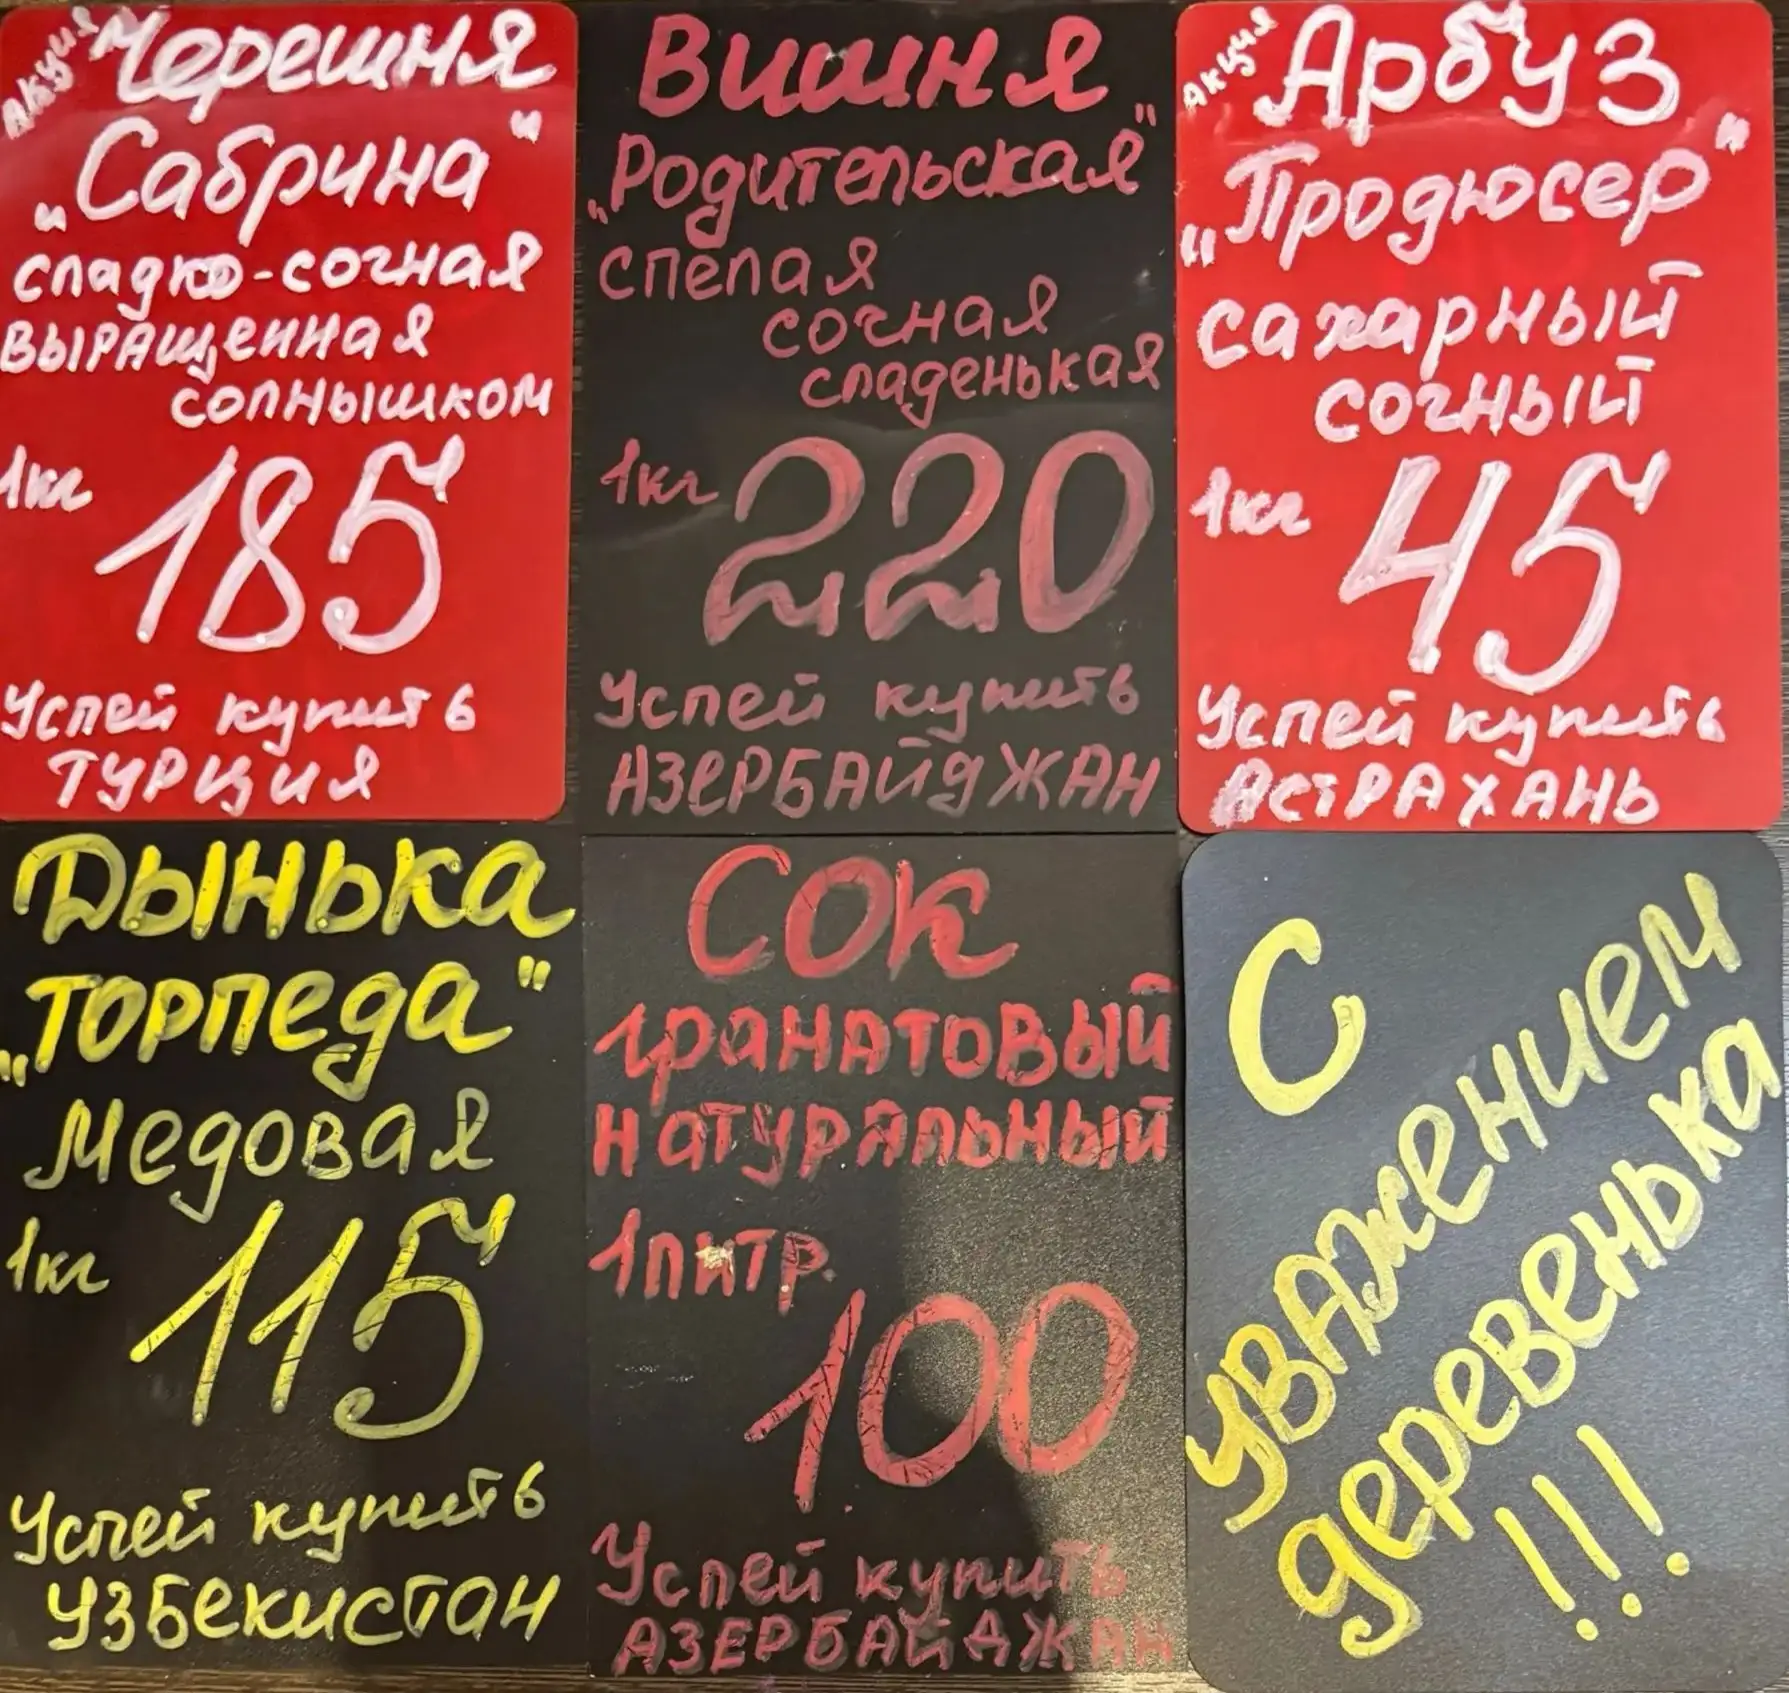 Акция Черешня
„Сабрина"
сладко-сочная
выращенная
солнышком
1кг 185
Успей купить
ТУРЦИЯ
Вишня
„Родительская"
спелая
сочная
сладенькая
1кг 220
Успей купить
АЗЕРБАЙДЖАН
Акция Арбуз
„Продюсер"
сахарный
сочный
1кг 45
Успей купить
АСТРАХАНЬ
Дынька
„Торпеда"
медовая
1кг 115
Успей купить
УЗБЕКИСТАН
Сок
гранатовый
натуральный
1литр
100
Успей купить
АЗЕРБАЙДЖАН
С
уважением
деревенька
!!!